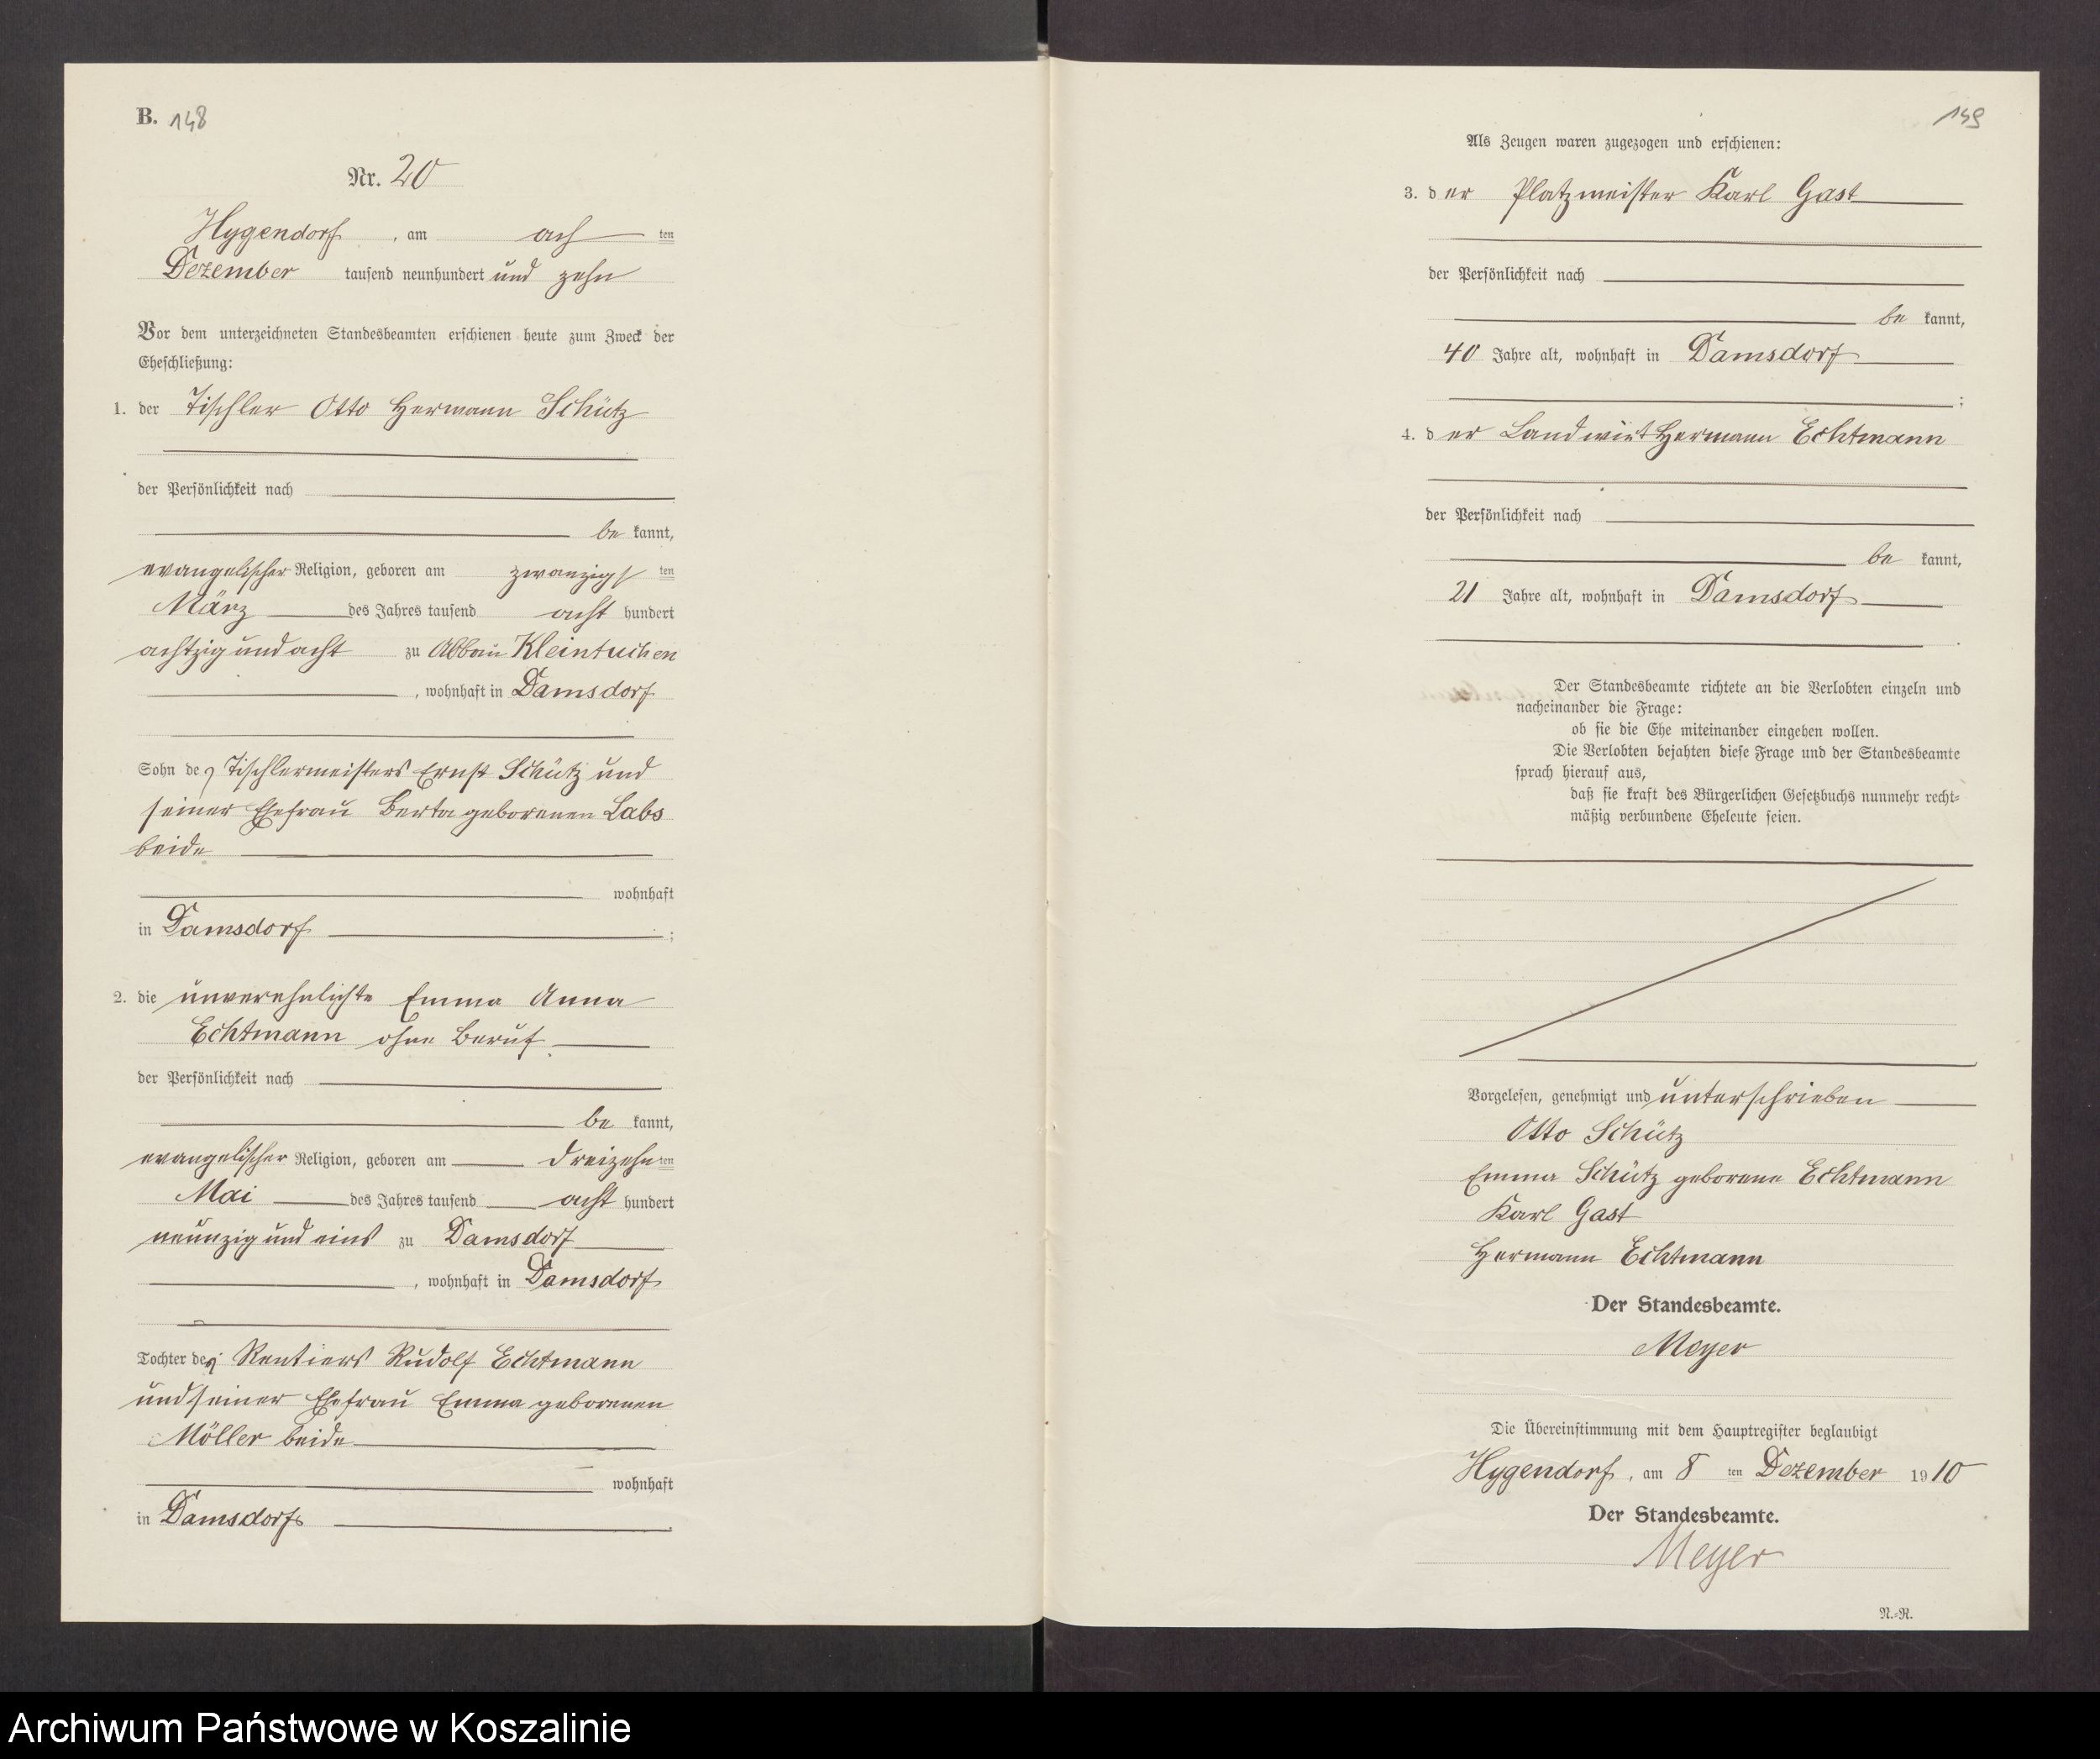 B. 148
Nr. 20
Hygendorf, am ach ten
Dezember tausend neunhundert und zehn
Vor dem unterzeichneten Standesbeamten erschienen heute zum Zweck der
Eheschließung:
1. der Tischler Otto Hermann Schütz
der Persönlichkeit nach
be kannt,
evangelischer Religion, geboren am zwanzigs ten
März des Jahres tausend acht hundert
achtzig und acht zu Abbau Kleintuchen
, wohnhaft in Damsdorf
Sohn des Tischlermeisters Ernst Schütz und
seiner Ehefrau Berta geborenen Labs
beide
wohnhaft
in Damsdorf ;
2. die unverehelichte Emma Anna
Echtmann ohne Beruf
der Persönlichkeit nach
be kannt,
evangelischer Religion, geboren am dreizehn ten
Mai des Jahres tausend acht hundert
neunzig und eins zu Damsdorf
, wohnhaft in Damsdorf
Tochter des Rentiers Rudolf Echtmann
und seiner Ehefrau Emma geborenen
Möller beide
wohnhaft
in Damsdorf .
149
Als Zeugen waren zugezogen und erschienen:
3. der Platzmeister Karl Gast
der Persönlichkeit nach
be kannt,
40 Jahre alt, wohnhaft in Damsdorf
;
4. der Landwirt Hermann Echtmann
der Persönlichkeit nach
be kannt,
21 Jahre alt, wohnhaft in Damsdorf
.
Der Standesbeamte richtete an die Verlobten einzeln und
nacheinander die Frage:
ob sie die Ehe miteinander eingehen wollen.
Die Verlobten bejahten diese Frage und der Standesbeamte
sprach hierauf aus,
daß sie kraft des Bürgerlichen Gesetzbuchs nunmehr recht-
mäßig verbundene Eheleute seien.
Vorgelesen, genehmigt und unterschrieben
Otto Schütz
Emma Schütz geborene Echtmann
Karl Gast
Hermann Echtmann
Der Standesbeamte.
Meyer
Die Übereinstimmung mit dem Hauptregister beglaubigt
Hygendorf, am 8 ten Dezember 1910
Der Standesbeamte.
Meyer
N.-R.
Archiwum Państwowe w Koszalinie